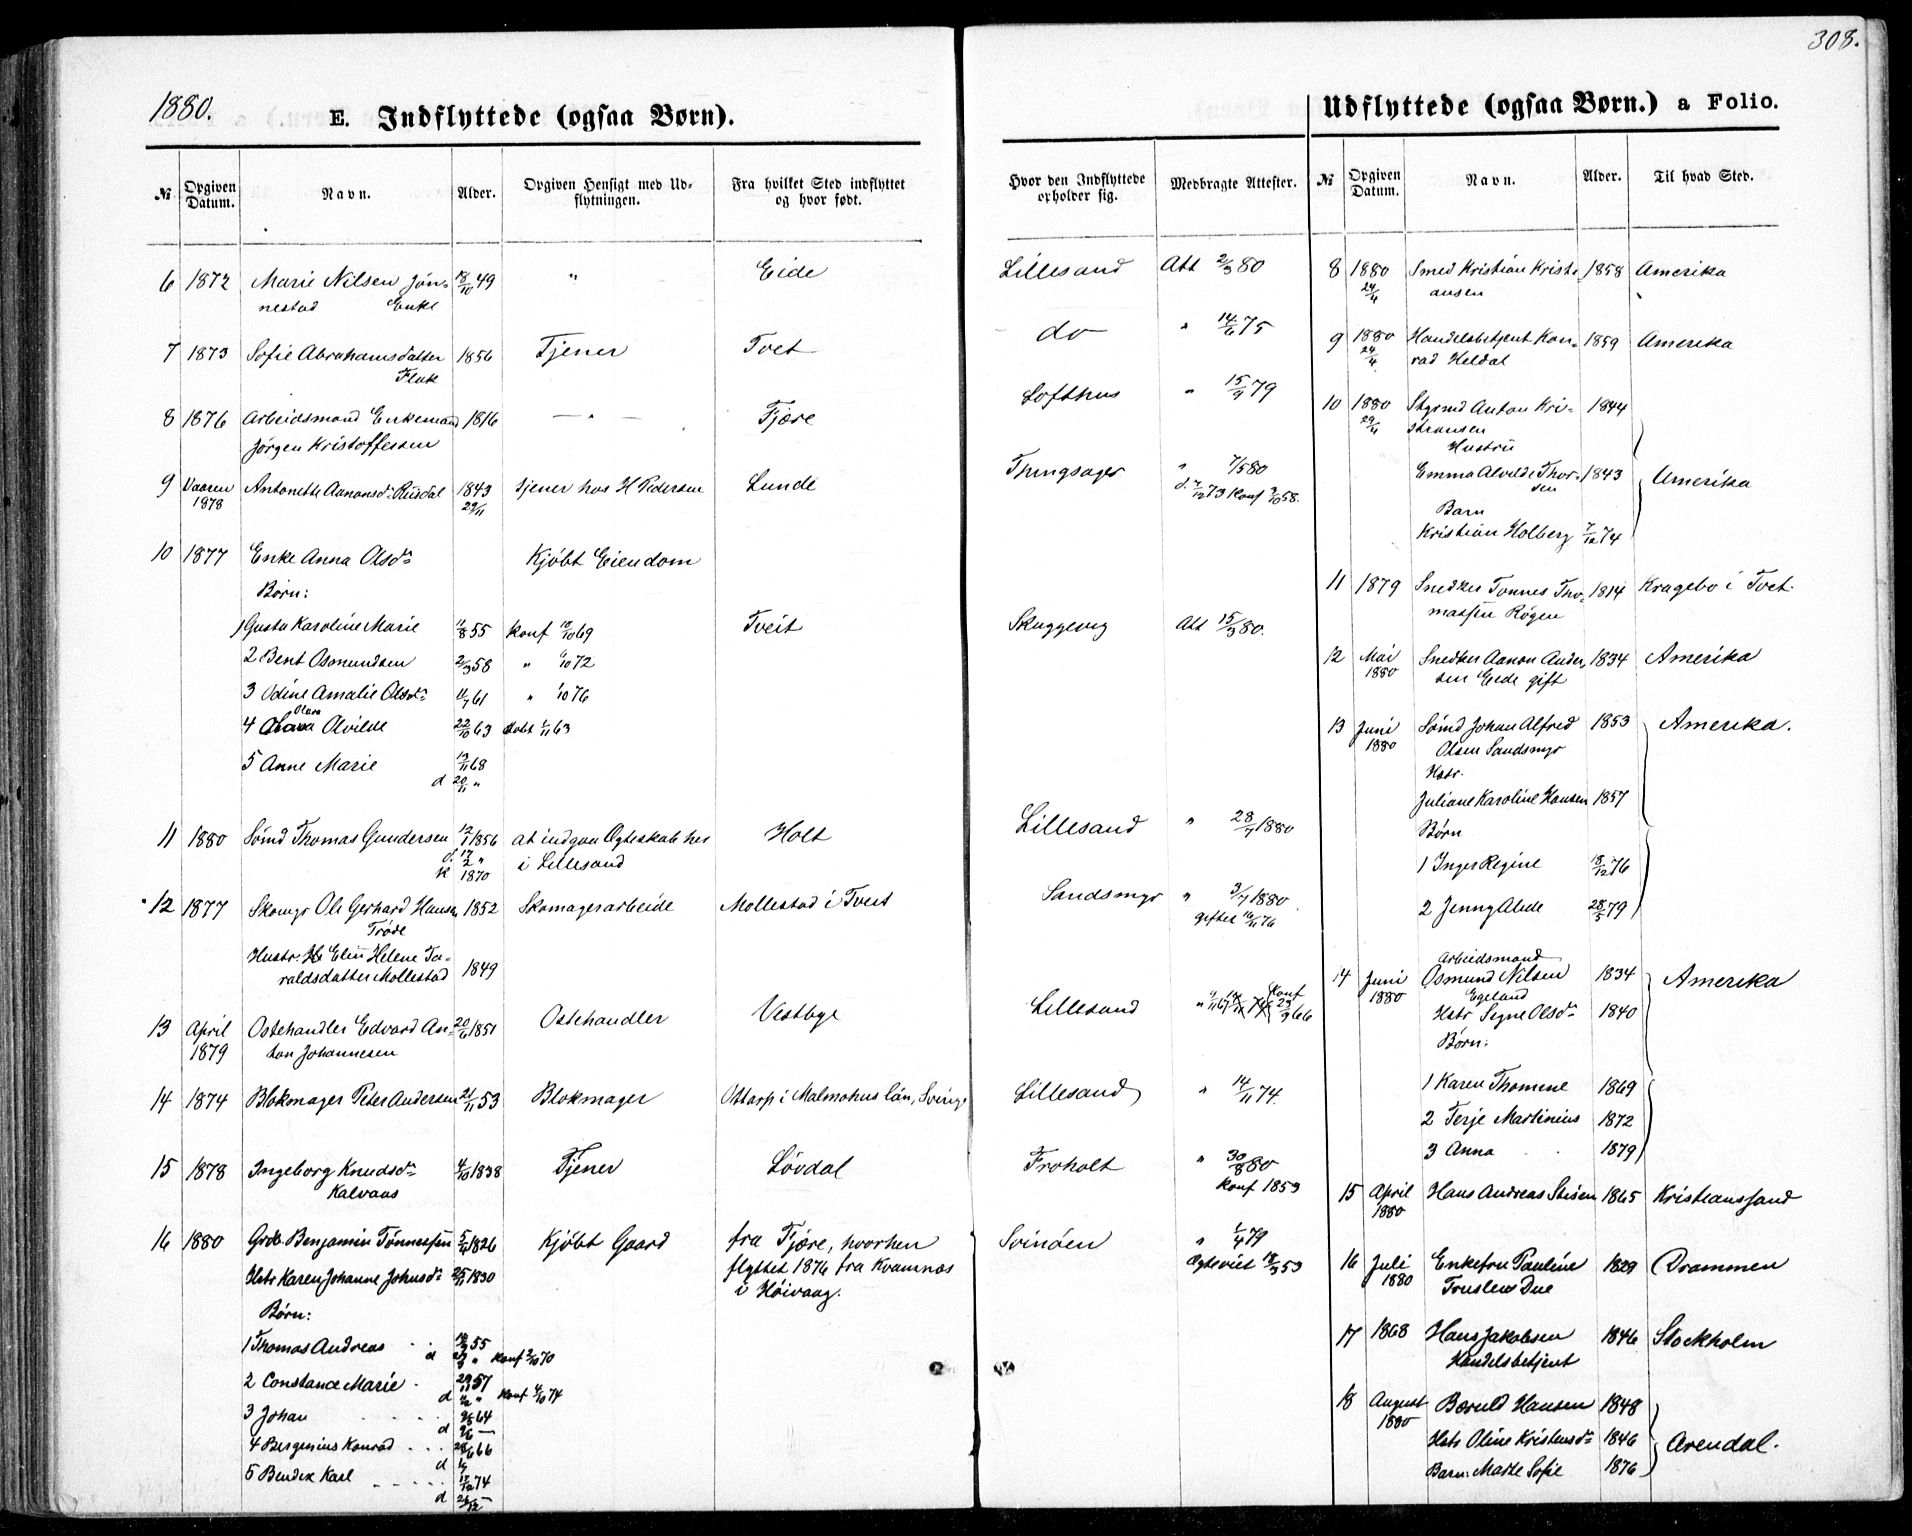 308.
1880.
E. Indflyttede (ogsaa Børn).
№ Opgiven Datum. Navn. Alder. Opgiven Hensigt med Udflytningen. Fra hvilket Sted indflyttet og hvor født. Hvor den Indflyttede opholder sig. Medbragte Attester.
6 1872 Marie Nilsen Jon- 18/10 49 " Eide Lillesand Att 2/3 80
nestad Enke
7 1873 Sofie Abrahamsdatter 1856 Tjener Tvet do " 14/6 75
Flak
8 1876 Arbeidsmand Enkemand 1816 — " — Fjære Lofthus " 15/4 79
Jørgen Kristoffersen
9 Vaaren 1878 Antonette Aanonsd: Risdal 1843 29/11 tjener hos H Pedersen Lunde Thingsager " 7/5 80
d. 7/12 73 Konf 3/10 58.
10 1877 Enke Anna Olsdr Kjøbt Eiendom
Børn:
1 Gusta Karoline Marie 11/8 55 Konf 10/10 69 Tveit Skuggevig Att 15/3 80.
2 Bent Osmundsen 2/3 58 " 6/10 72
3 Udine Amalie Olsdr 11/7 61 " 1/10 76
4 Olava Alvilde 22/10 63 døbt 1/11 63
5 Anne Marie 13/11 68
d 20/11 "
11 1880 Sømd Thomas Gundersen 12/1 1856 at indgaa Ægteskab her Holt Lillesand " 28/7 1880
d. 17/2 " i Lillesand
k 1870
12 1877 Skomgr Ole Gerhard Hansen 1852 Skomagerarbeide Mollestad i Tveit Sandsmyr " 3/7 1880
Trøde giftet 16/11 76
Hustr: Elen Helene Ta-
raldsdatter Mollestad 1849
13 April 1879 Ostehandler Edvard An- 20/6 1851 Ostehandler Vestbye Lillesand Konf 29/9 66
ton Johannesen
14 1874 Blokmager Peter Andersen 21/11 53 Blokmager Ottarp i Malmøhus län, Sverige Lillesand " 14/11 74.
15 1878 Ingeborg Knudsdr 4/10 1838 Tjener Løvdal Froholt " 30/8 80
Kalvaas Konf 1853
16 1880 Grdb. Benjamin Tønnessen 5/4 1826 Kjøbt Gaard fra Fjære, hvorhen Svinøen " 1/4 79
Hstr Karen Johanne Johnsdr 25/11 1830 flyttet 1876 fra Kvamnæs Ægteviet 18/3 53
Børn: i Høivaag.
1 Thomas Andreas 55
d " Konf 2/10 70
2 Constance Marie 29/11 57
d " Konf 4/10 74
3 Johan 64
d —
4 Bergenius Konrad 66
d
5 Bendix Karl 17/12 74
d 26/12 —
Udflyttede (ogsaa Børn.) a Folio.
№ Opgiven Datum. Navn. Alder. Til hvad Sted.
8 1880 24/4 Smed Kristian Kristi- 1858 Amerika
ansen
9 1880 24/4 Handelsbetjent Kon- 1859 Amerika
rad Heldal
10 1880 29/4 Styrmd Anton Kri- 1844
stiansen
Hustru
Emma Alvilde Thor- 1843 Amerika
sen
Barn
Kristian Holberg 7/12 74
11 1879 Snedker Tønnes Tho- 1814 Kragebo i Tvet.
massen Røgen
12 Mai 1880 Snedker Aanon Ander- 1834 Amerika
sen Eide gift
13 Juni 1880 Sømd Johan Alfred 1853 Amerika.
Olsen Sandsmyr
Hstr.
Juliane Karoline Hansen 1857
Børn
1 Inger Regine 18/12 76
2 Jenny Alede 28/5 79
Arbeidsmand
14 Juni 1880 Osmund Nilsen 1834 Amerika
Egeland
Hstr Segne Olsdr 1840
Børn:
1 Karen Thomine 1869
2 Terje Martinius 1872
3 Anna 1879
15 April 1880 Hans Andreas Stisen 1865 Kristianssand
16 Juli 1880 Enkefru Pauline 1829 Drammen
Truslew Due
17 1868 Hans Jakobsen 1846 Stockholm
Handelsbetjent
18 August 1880 Beruld Hansen 1848
Hstr Oline Kristensdr 1846 Arendal.
Barn: Marte Sofie 1876